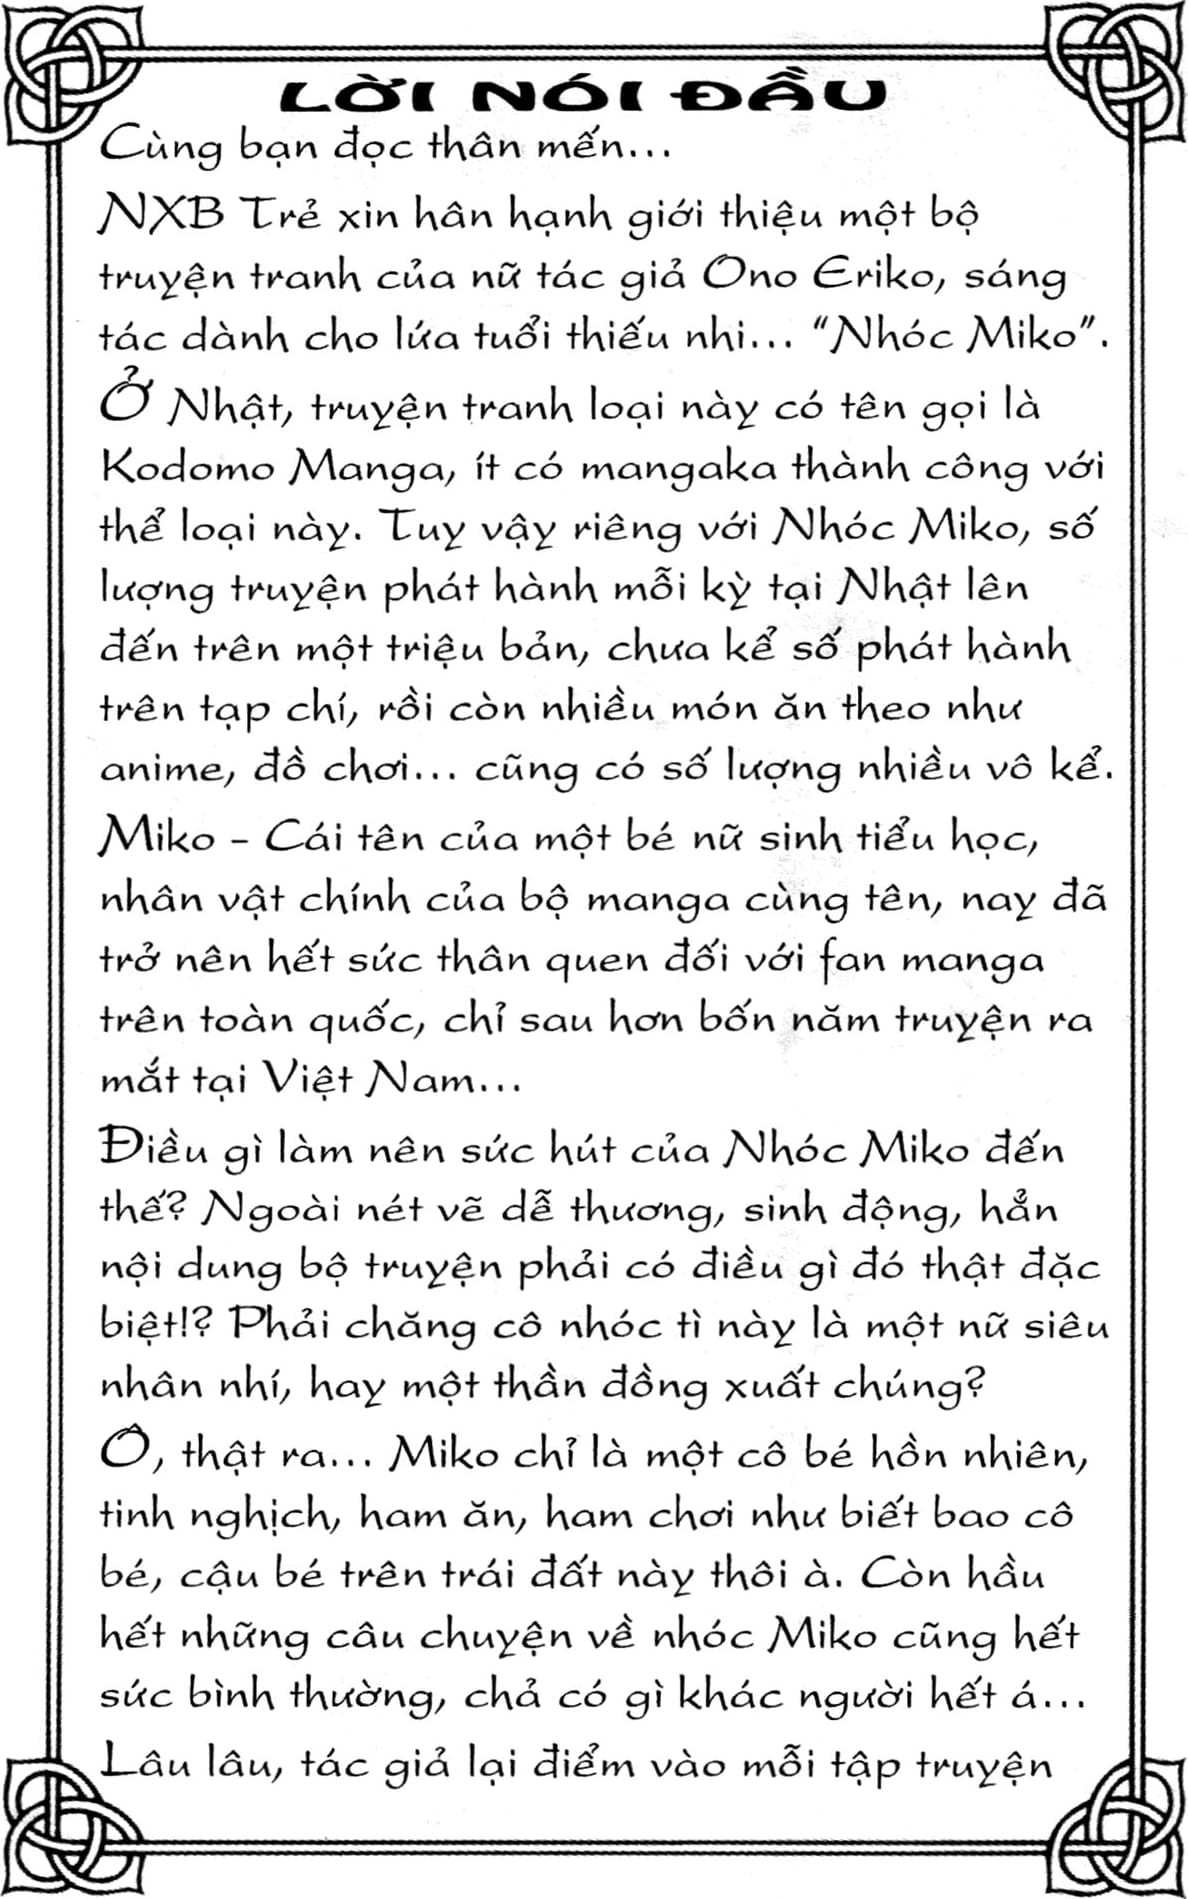 LỜI NÓI ĐẦU
Cùng bạn đọc thân mến...
NXB Trẻ xin hân hạnh giới thiệu một bộ
truyện tranh của nữ tác giả Ono Eriko, sáng
tác dành cho lứa tuổi thiếu nhi... “Nhóc Miko”.
Ở Nhật, truyện tranh loại này có tên gọi là
Kodomo Manga, ít có mangaka thành công với
thể loại này. Tuy vậy riêng với Nhóc Miko, số
lượng truyện phát hành mỗi kỳ tại Nhật lên
đến trên một triệu bản, chưa kể số phát hành
trên tạp chí, rồi còn nhiều món ăn theo như
anime, đồ chơi... cũng có số lượng nhiều vô kể.
Miko - Cái tên của một bé nữ sinh tiểu học,
nhân vật chính của bộ manga cùng tên, nay đã
trở nên hết sức thân quen đối với fan manga
trên toàn quốc, chỉ sau hơn bốn năm truyện ra
mắt tại Việt Nam...
Điều gì làm nên sức hút của Nhóc Miko đến
thế? Ngoài nét vẽ dễ thương, sinh động, hẳn
nội dung bộ truyện phải có điều gì đó thật đặc
biệt!? Phải chăng cô nhóc tì này là một nữ siêu
nhân nhí, hay một thần đồng xuất chúng?
Ô, thật ra... Miko chỉ là một cô bé hồn nhiên,
tinh nghịch, ham ăn, ham chơi như biết bao cô
bé, cậu bé trên trái đất này thôi à. Còn hầu
hết những câu chuyện về nhóc Miko cũng hết
sức bình thường, chả có gì khác người hết á...
Lâu lâu, tác giả lại điểm vào mỗi tập truyện